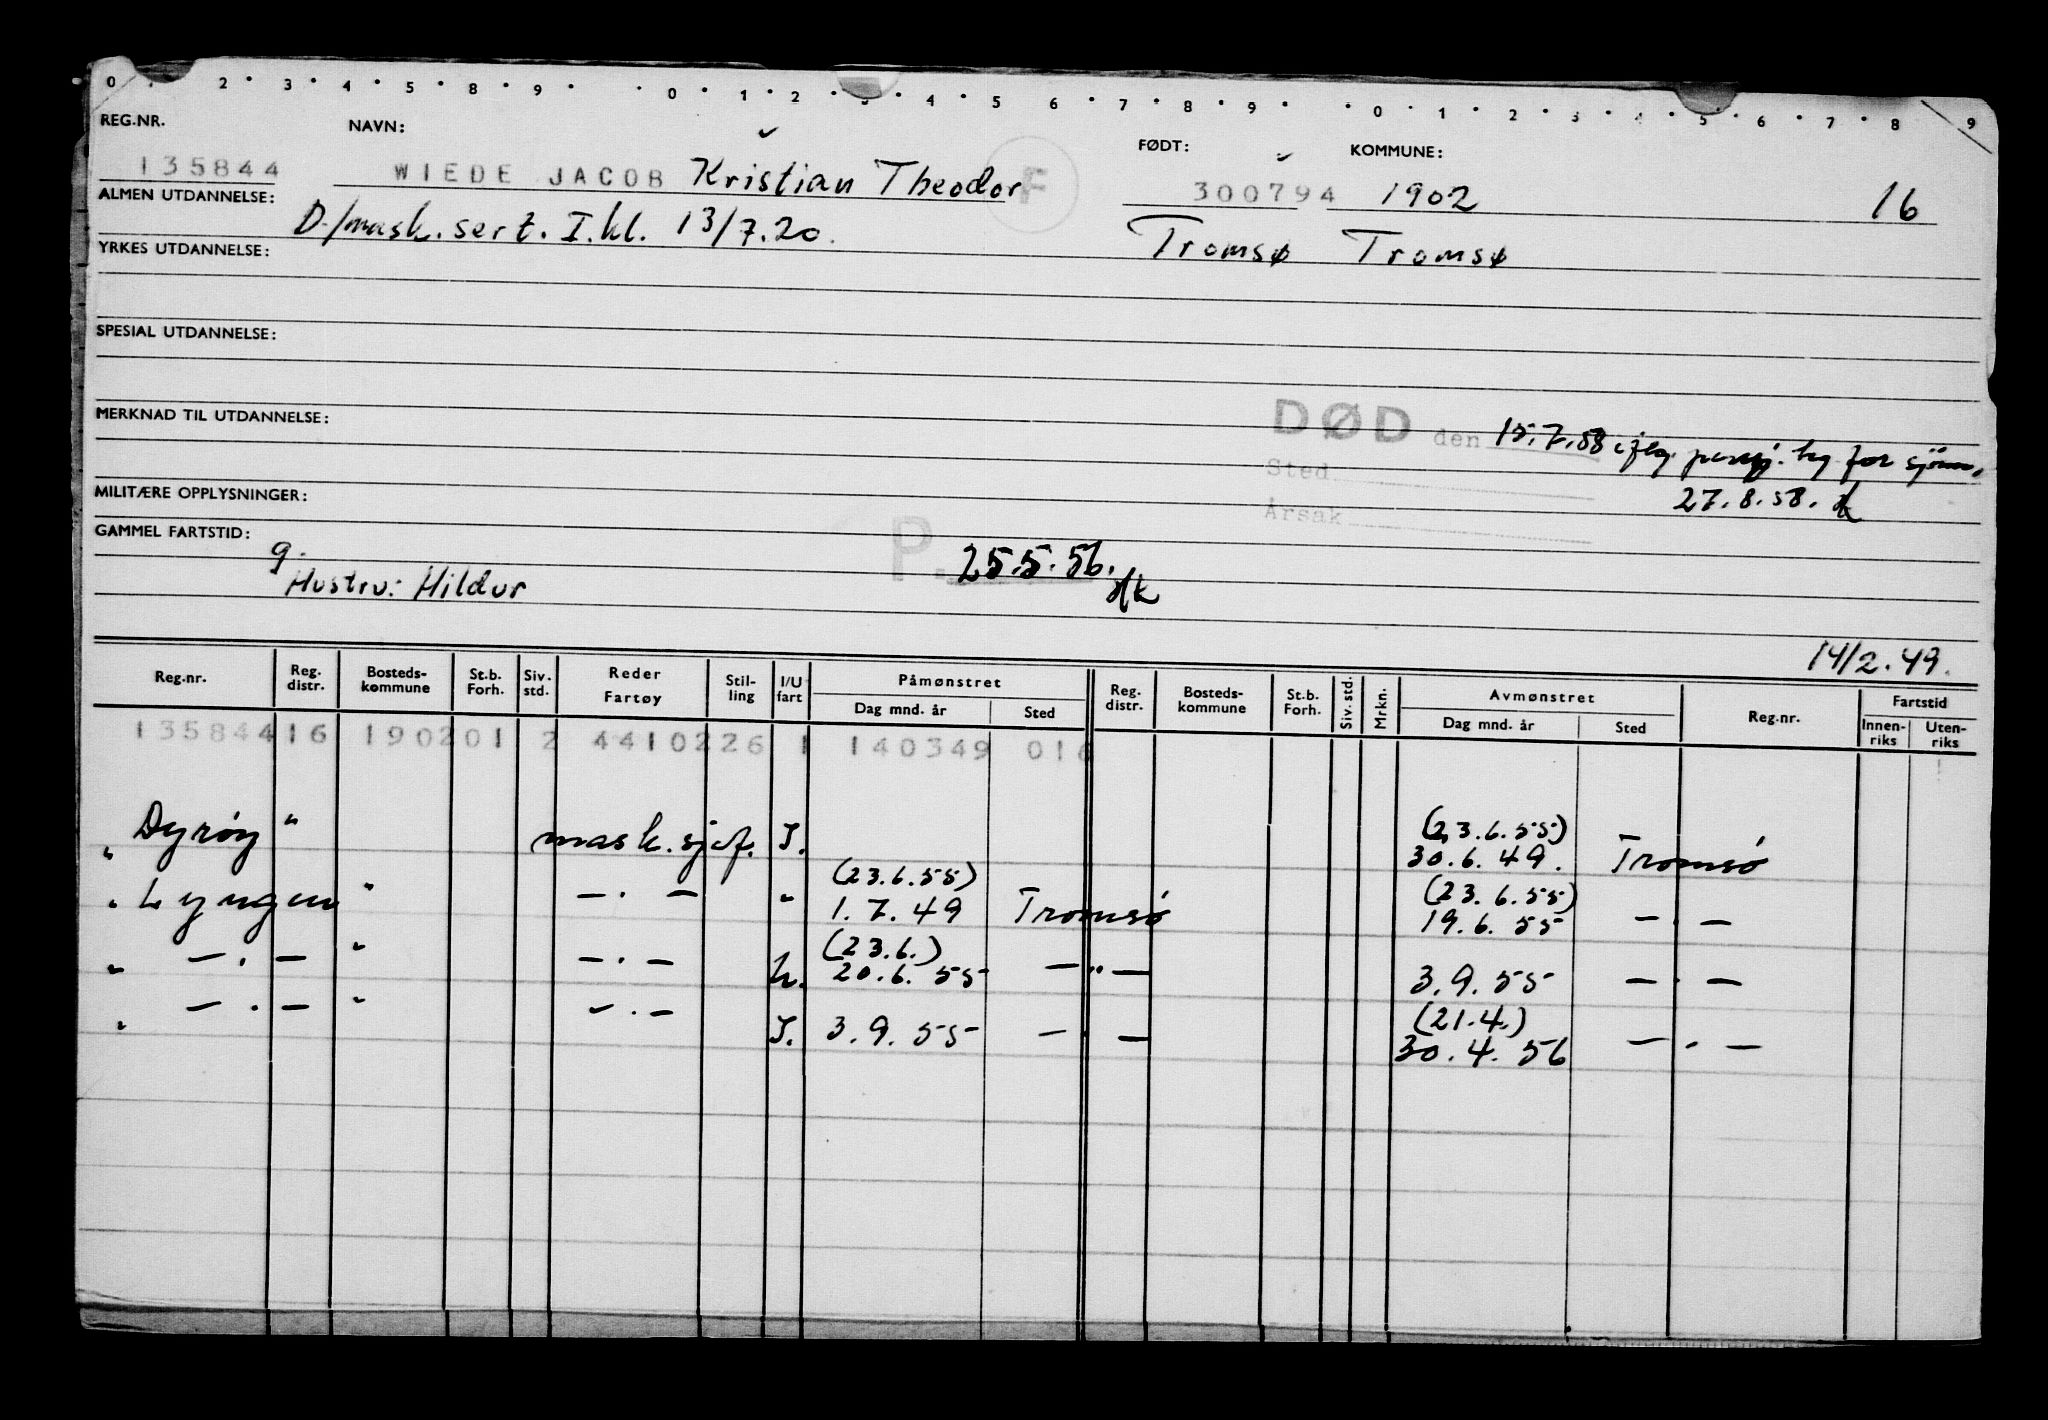 0 2 3 4 5 8 9 0 1 2 3 4 5 6 7 8 9 0 1 2 3 4 5 6 7 8 9
REG.NR. NAVN: FØDT: KOMMUNE:
135844 WIEDE JACOB Kristian Theodor F 300794 1902 16
ALMEN UTDANNELSE: D./mask. sert. I. kl. 13/7.20. Tromsø Tromsø
YRKES UTDANNELSE:
SPESIAL UTDANNELSE:
MERKNAD TIL UTDANNELSE:
DØD den 15.7.58 ifлg. pensj. tr for sjöm.
Sted
27.8.58.
MILITÆRE OPPLYSNINGER:
Årsak
GAMMEL FARTSTID:
g.
P. 25.5.56.
Hustru: Hildur
14/2.49.
Reg.nr. Reg. distr. Bosteds-kommune St.b. Forh. Siv. std. Reder Fartøy Stil-ling I/U fart Påmønstret Dag mnd. år Sted Reg. distr. Bosteds-kommune St.b. Forh. Siv. std. Mrkn. Avmønstret Dag mnd. år Sted Reg.nr. Fartstid Innen-riks Uten-riks
135844 16 1902 01 2 4410226 1 140349 016
(23.6.55)
" Dyröy " mask.sjef. I. 30.6.49. Tromsö
(23.6.55) (23.6.55)
" Lyngen " — . — " 1.7.49 Tromsö 19.6.55 — . —
(23.6.)
" — . — " — . — U. 20.6.55 — " — 3.9.55 — . —
(21.4.)
" — . — " — . — I. 3.9.55 — . — 30.4.56 — . —